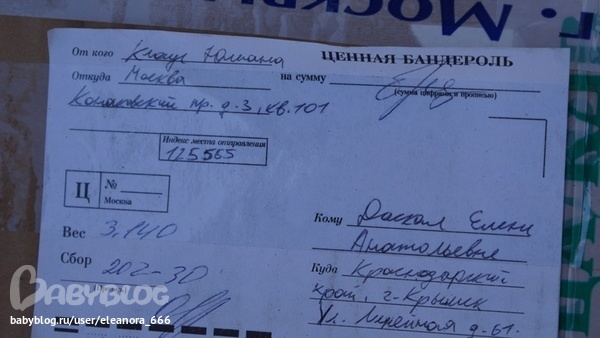 г. Москвы
От кого Клаус Юлиана
ЦЕННАЯ БАНДЕРОЛЬ
Откуда Москва
на сумму
(сумма цифрами и прописью)
Конаковский пр. д-3, кв. 101
Индекс места отправления
125565
Ц
№
Москва
Вес 3,140
Сбор 202-30
Кому Даскал Елене
Анатольевне
Куда Краснодарский
край, г-Крымск
ул. д-61.
BABYBLOG
babyblog.ru/user/eleanora_666